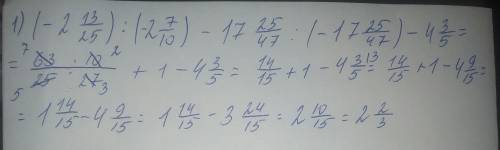 1) (-2 13/25) : (-2 7/10) - 17 25/47 : (-17 25/47) - 4 3/5 =
= 7 63 · 10 2 / 5 25 · 27 3 + 1 - 4 3/5 = 14/15 + 1 - 4 3/5 = 14/15 + 1 - 4 9/15 =
= 1 14/15 - 4 9/15 = 1 14/15 - 3 24/15 = 2 10/15 = 2 2/3